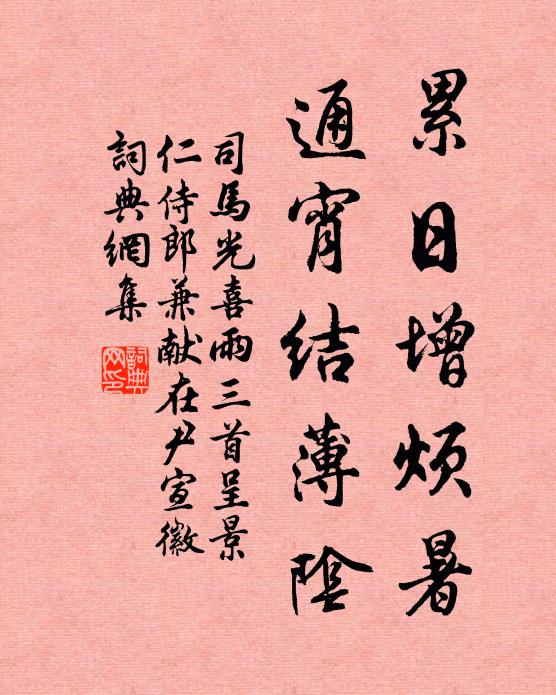 累日增烦暑
通宵结薄陰
司馬光喜雨三首呈景
仁侍郎兼献在尹宣徽
詞典網集
詞典
网印